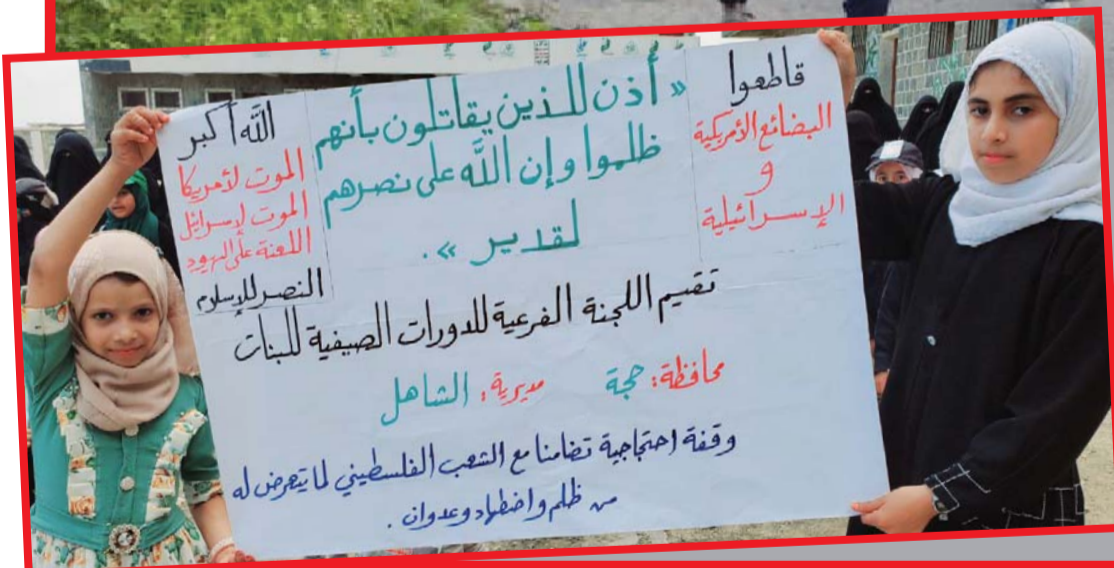 قاطعوا
البضائع الأمريكية
و
الإسرائيلية
« أذن للذين يقاتلون بأنهم
ظلموا وإن الله على نصرهم
لقدير ».
الله أكبر
الموت لأمريكا
الموت لإسرائيل
اللعنة على اليهود
النصر للإسلام
تقيم اللجنة الفرعية للدورات الصيفية للبنات
محافظة: حجة مديرية: الشاهل
وقفة احتجاجية تضامنا مع الشعب الفلسطيني لما يتعرض له
من ظلم واضطهاد وعدوان .